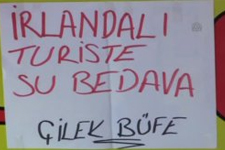 İRLANDALI
TURİSTE
SU BEDAVA
ÇİLEK BÜFE